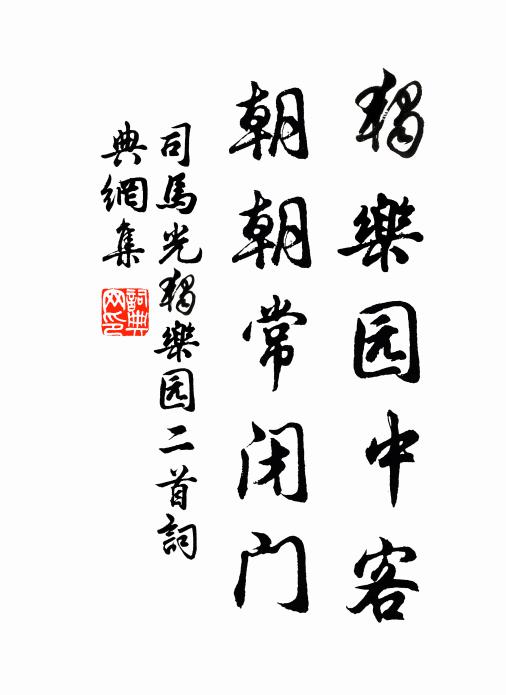 獨樂园中客
朝朝常闭门
司馬光獨樂园二首詞
典網集
詞典
网印